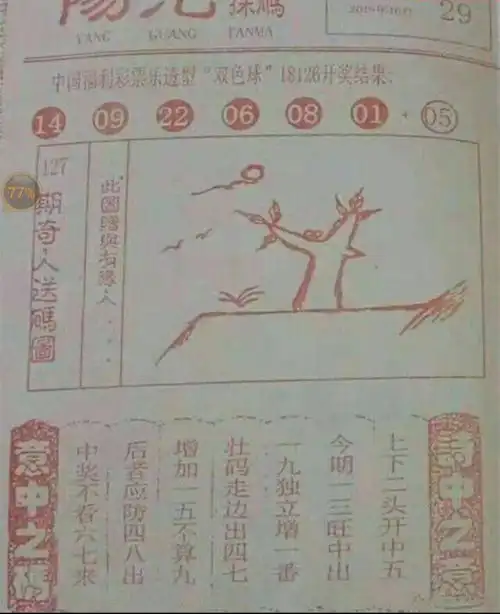 YANG GUANG TANMA
29
中国福利彩票乐透型“双色球”18126开奖结果:
14 09 22 06 08 01 + 05
77%
127期奇人送碼圖
此圖贈與有緣人...
诗中之意
上下二头开中五
今明一三旺中出
一九独立增一番
壮码走边出四七
增加一五不算九
后者应防四八出
中奖不看六七来
意中之码